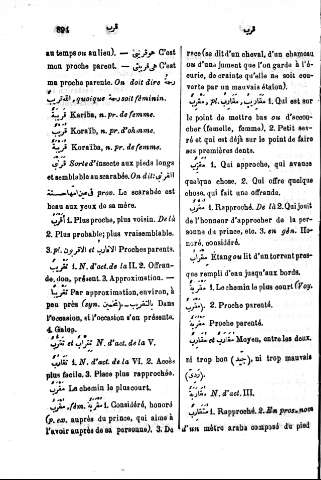 894
قرب
قرب
au temps ou au lieu). — هو قريبى C'est
mon proche parent. — هى قريبتى C'est
ma proche parente. On doit dire رحمة
الله قريب, quoique رحمة soit féminin.
قريبة Kariba, n. pr. de femme.
قريب Koraïb, n. pr. d'homme.
قريبة Koraïba, n. pr. de femme.
قرنبى Sorte d'insecte aux pieds longs
et semblable au scarabée. On dit: القرنبى
فى عين امها حسنة prov. Le scarabée est
beau aux yeux de sa mère.
اقرب 1. Plus proche, plus voisin. De là
2. Plus probable; plus vraisemblable.
3. pl. الاقارب et الاقربون Proches parents.
تقريب 1. N. d'act. de la II. 2. Offran-
de, don, présent. 3. Approximation. —
تقريبا Par approximation, environ, à
peu près (syn. تخمين). — بالتقريب Dans
l'occasion, si l'occasion s'en présente.
4. Galop.
تقرب et تقراب N. d'act. de la V.
تقرب 1. N. d'act. de la VI. 2. Accès
plus facile. 3. Place plus rapprochée.
مقرب Le chemin le plus court.
مقرب, fém. مقربة 1. Considéré, honoré
(p. ex. auprès du prince, qui aime à
l'avoir auprès de sa personne). 3. De
race (se dit d'un cheval, d'un chameau
ou d'une jument que l'on garde à l'é-
curie, de crainte qu'elle ne soit cou-
verte par un mauvais étalon).
مقرب, pl. مقاريب 1. Qui est sur
le point de mettre bas ou d'accou-
cher (femelle, femme). 2. Petit sev-
ré et qui est déjà sur le point de faire
ses premières dents.
مقرب 1. Qui approche, qui avance
quelque chose. 2. Qui offre quelque
chose, qui fait une offrande.
مقرب 1. Rapproché. De là 2. Qui jouit
de l'honneur d'approcher de la per-
sonne du prince, etc. 3. en gén. Ho-
noré, considéré.
Étang ou lit d'un torrent pres-
que rempli d'eau jusqu'aux bords.
مقربة 1. Le chemin le plus court (Voy.
مقرب). 2. Proche parenté.
مقربة Proche parenté.
مقارب et مقارب Moyen, entre les deux,
ni trop bon (جيد), ni trop mauvais
(ردى).
مقاربة N. d'act. III.
متقارب 1. Rapproché. 2. En pros. nom
d'un mètre arabe composé du pied